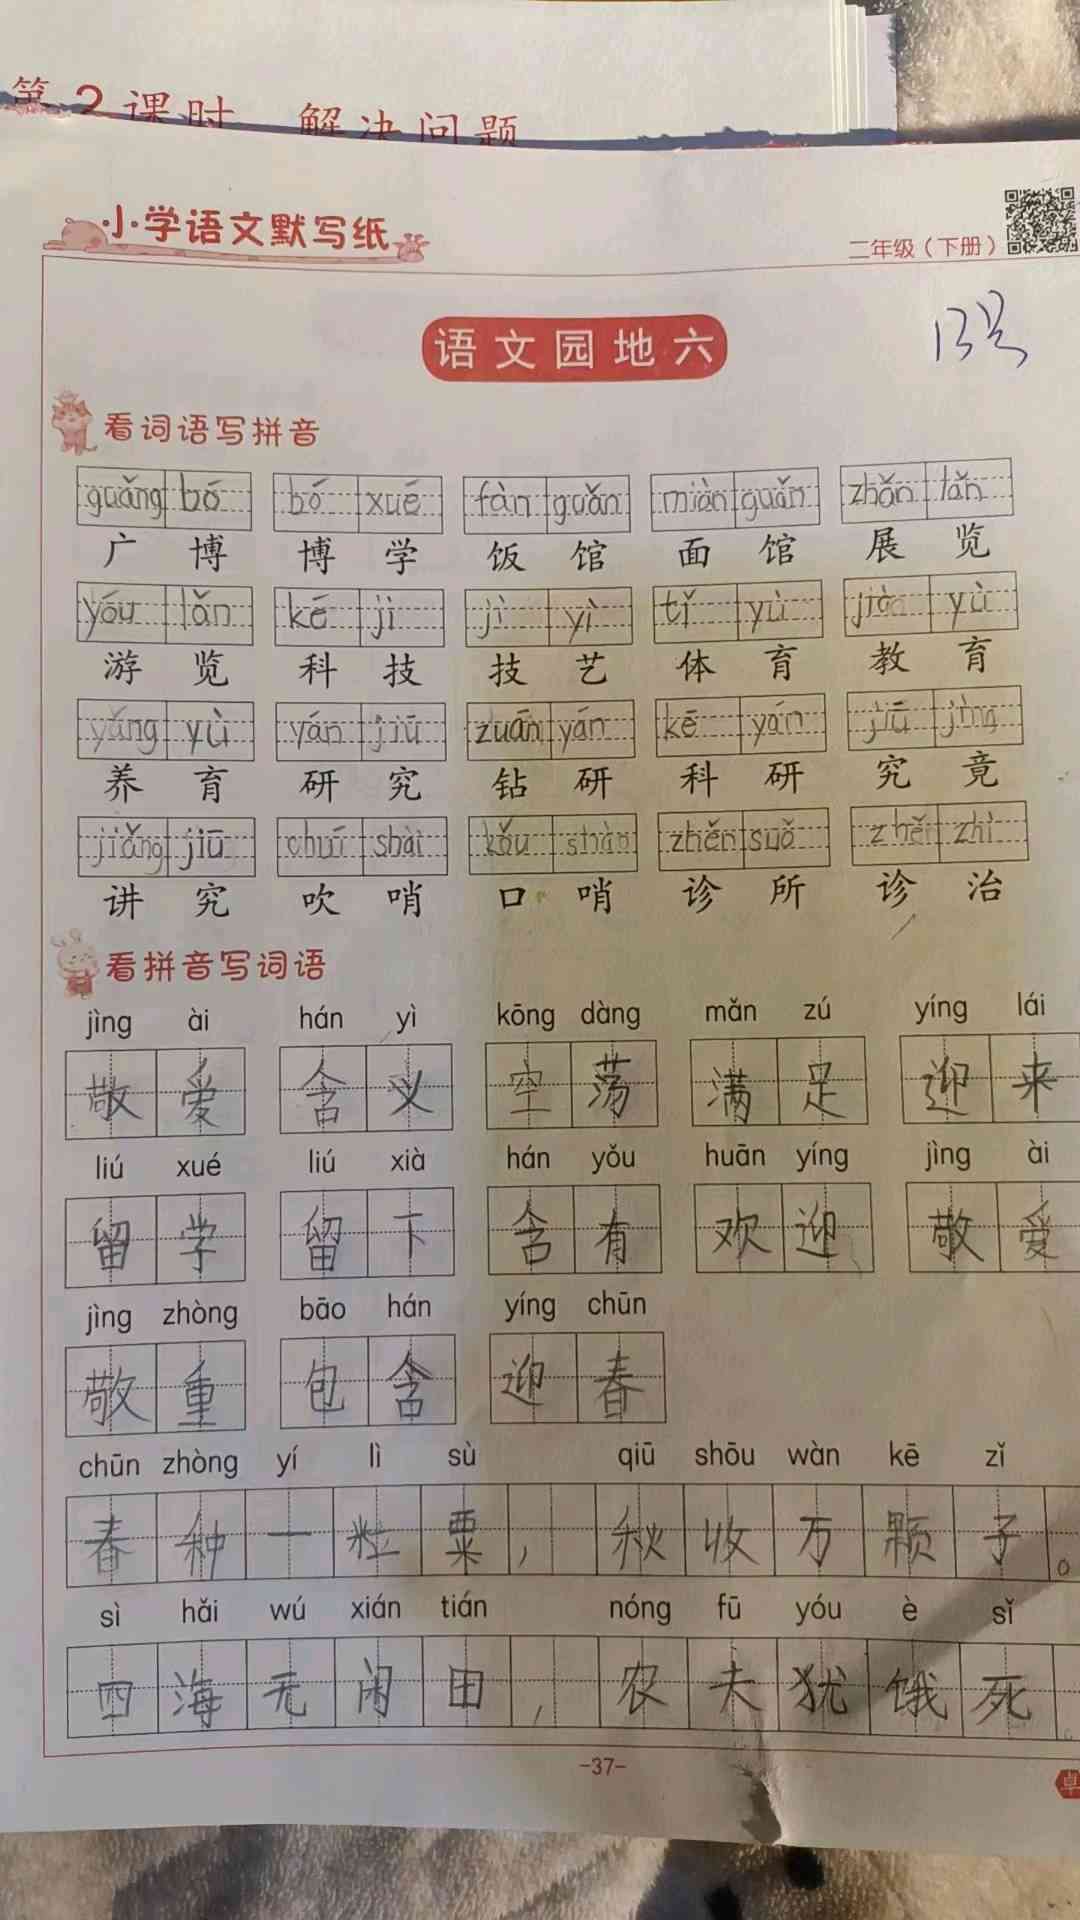 第2课时 解决问题
小学语文默写纸
二年级（下册）
语文园地六
13号
看词语写拼音
guǎng bó bó xué fàn guǎn miàn guǎn zhǎn lǎn
广 博 博 学 饭 馆 面 馆 展 览
yóu lǎn kē jì jì yì tǐ yù jiào yù
游 览 科 技 技 艺 体 育 教 育
yǎng yù yán jiū zuān yán kē yán jiū jìng
养 育 研 究 钻 研 科 研 究 竟
jiǎng jiū chuī shào kǒu shào zhěn suǒ zhěn zhì
讲 究 吹 哨 口 哨 诊 所 诊 治
看拼音写词语
jìng ài hán yì kōng dàng mǎn zú yíng lái
敬 爱 含 义 空 荡 满 足 迎 来
liú xué liú xià hán yǒu huān yíng jìng ài
留 学 留 下 含 有 欢 迎 敬 爱
jìng zhòng bāo hán yíng chūn
敬 重 包 含 迎 春
chūn zhòng yí lì sù qiū shōu wàn kē zǐ
春 种 一 粒 粟 ， 秋 收 万 颗 子 。
sì hǎi wú xián tián nóng fū yóu è sǐ
四 海 无 闲 田 ， 农 夫 犹 饿 死 。
-37-
卓